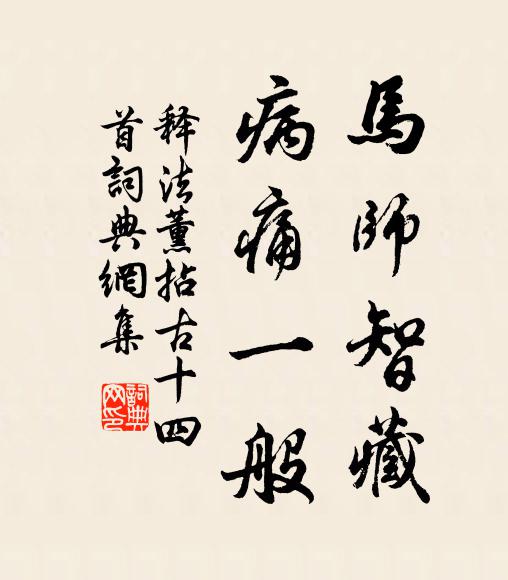 馬師智藏
病痛一般
釋法薰拈古十四
首詞典網集
詞典
网印